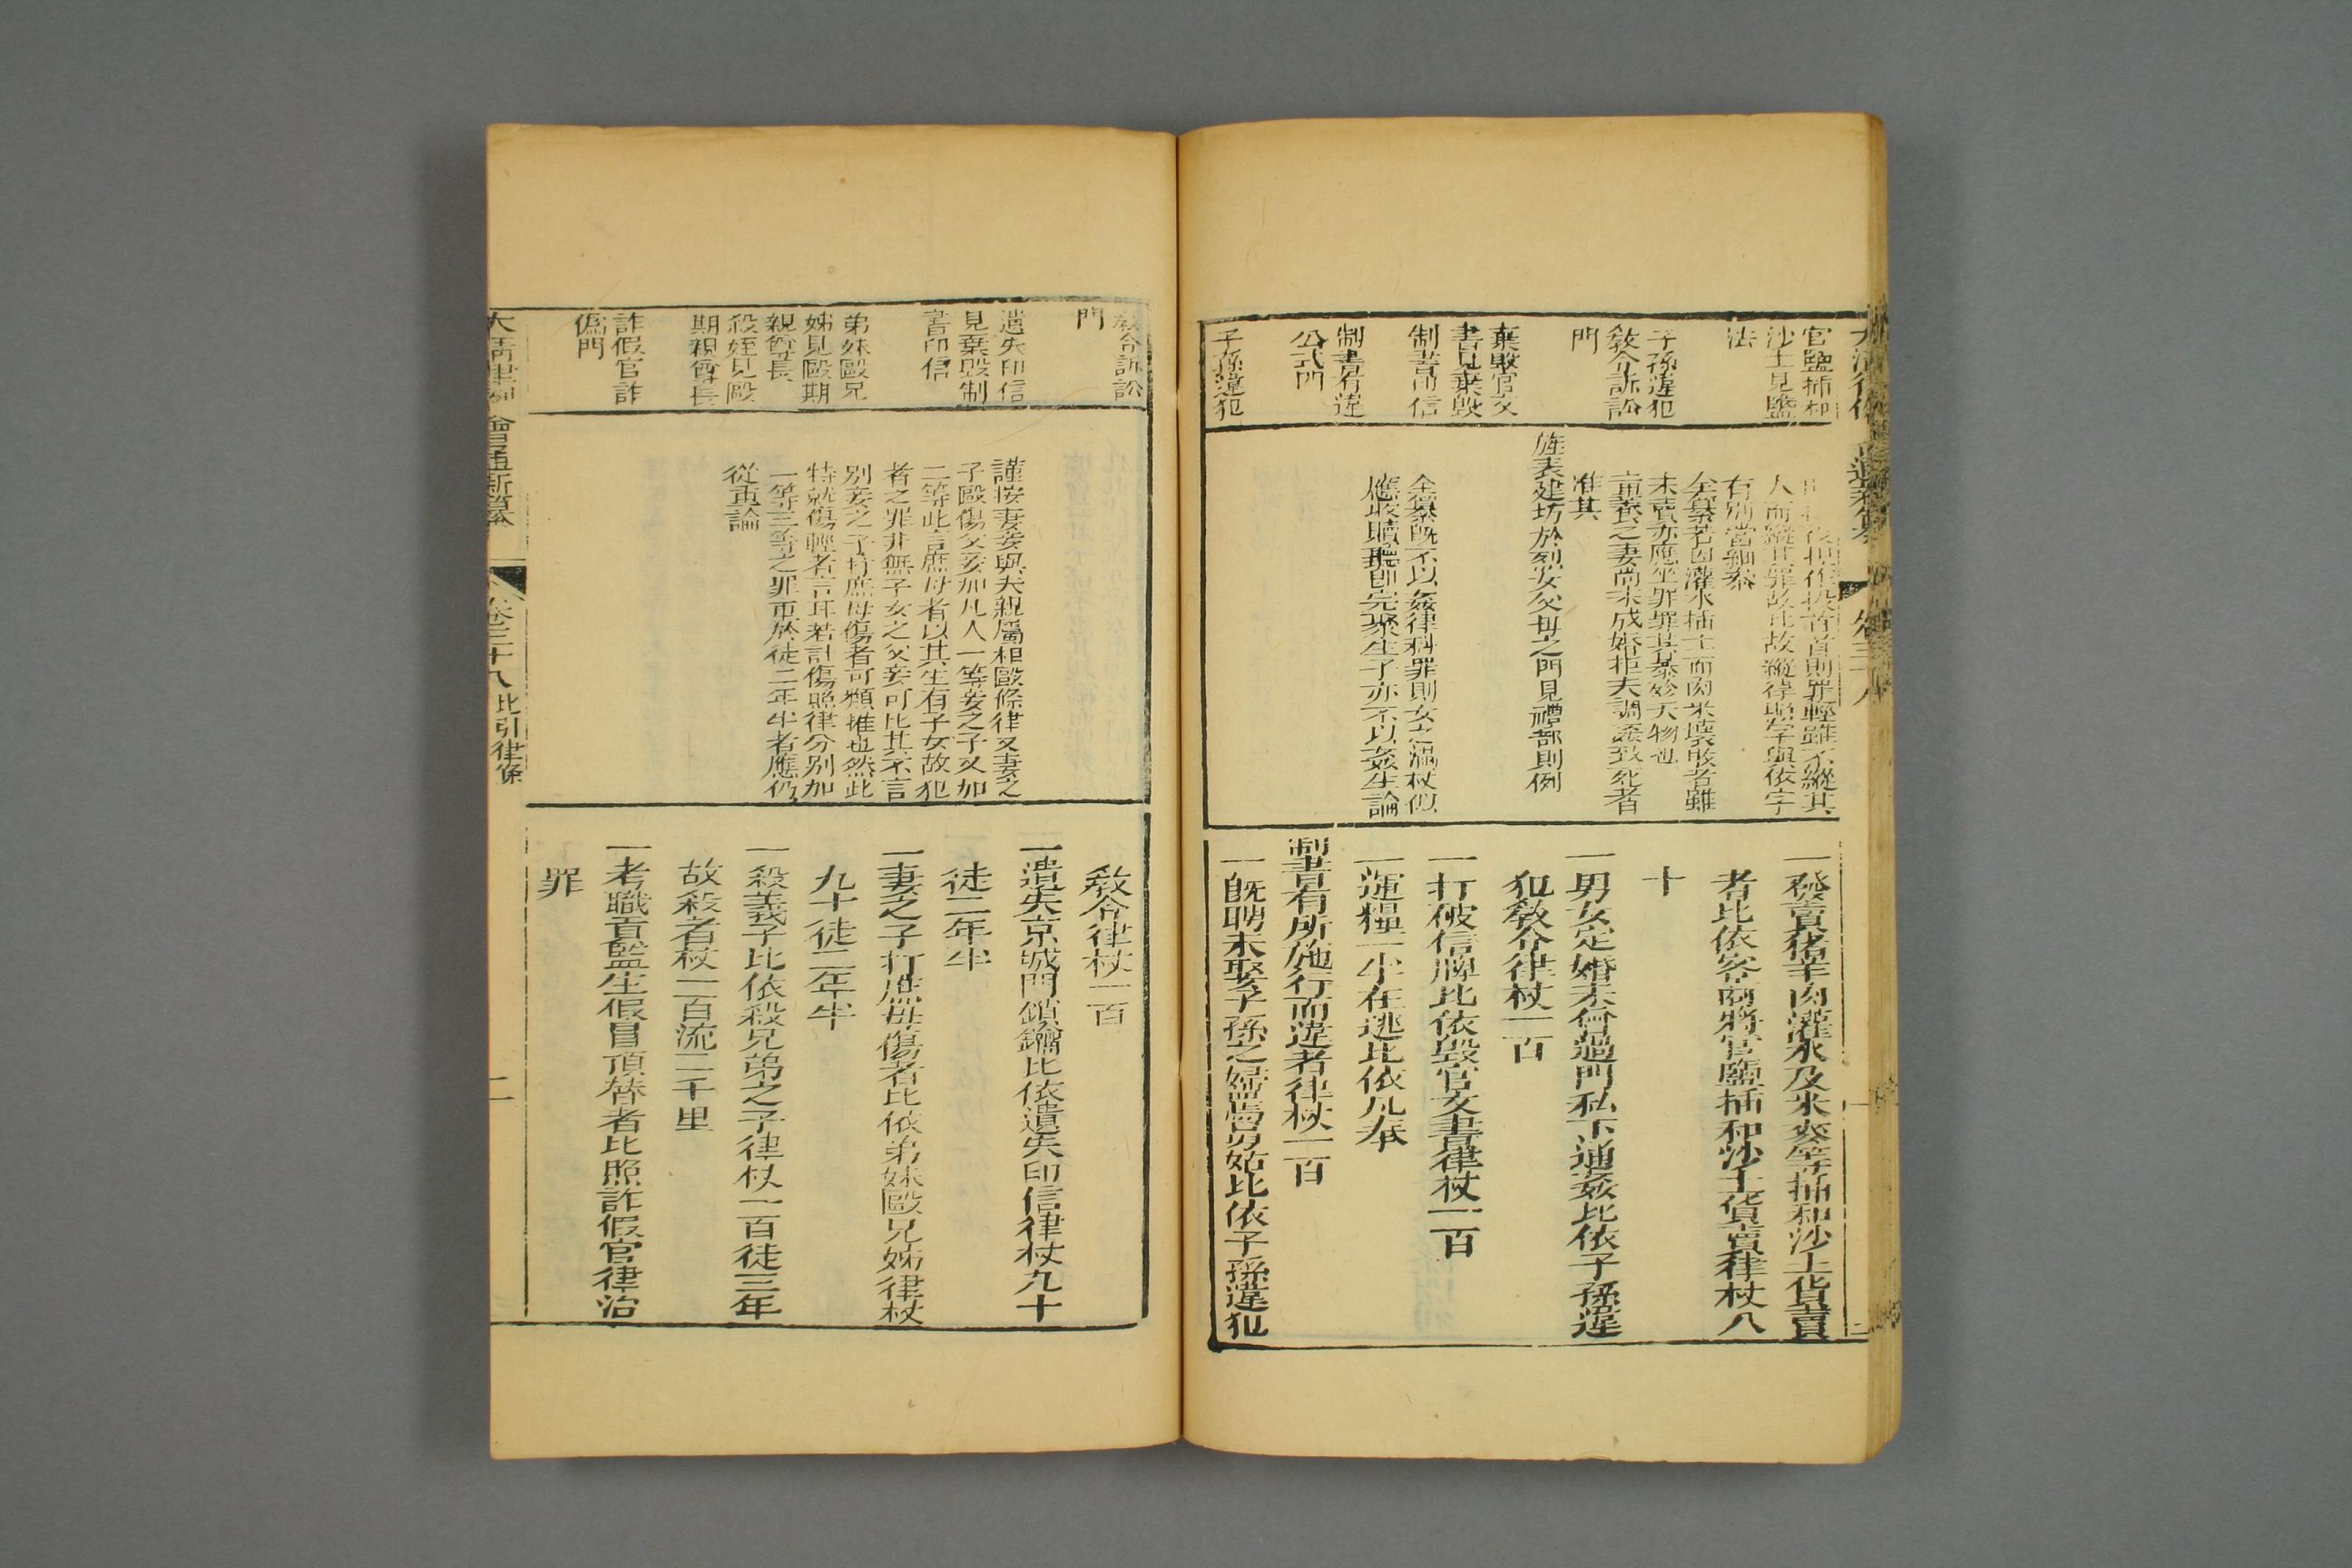 官鹽插和
沙土見鹽
法
子孫違犯
教令訴訟
門
棄毀官文
書見棄毀
制書印信
制書有違
公式門
子孫違犯
人而縱其罪故比故縱律照字與依字
有別當細叅
全纂若因灌水插土而肉米壞敗者雖
未賣亦應坐罪罪其暴殄天物也
童養之妻尚未成婚拒夫調姦致死者
准其
旌表建坊於列女父母之門見禮部則例
全纂既不以姦律科罪則女之滿杖似
應收贖聽卽完聚生子亦不以姦生論
一發賣猪羊肉灌水及米麥等插和沙土貨賣
者比依客商將官鹽插和沙土貨賣律杖八
十
一男女定婚未曾過門私下通姦比依子孫違
犯教令律杖一百
一打破信牌比依毀官文書律杖一百
一運糧一半在逃比依凡奉
制書有所施行而違者律杖一百
一旣聘未娶子孫之婦罵舅姑比依子孫違犯
教令訴訟
門
遺失印信
見棄毀制
書印信
弟妹毆兄
姊見毆期
親尊長
殺姪見毆
期親尊長
詐假官詐
僞門
謹按妻妾與夫親屬相毆條律文妻之
子毆傷父妾加凡人一等妾之子又加
二等此言庶母者以其生有子女故犯
者之罪非無子女之父妾可比其不言
別妾之子打庶母傷者可類推也然此
特就傷輕者言耳若計傷照律分別加
一等三等之罪重於徒二年半者應仍
從重論
教令律杖一百
一遺失京城門鎖鑰比依遺失印信律杖九十
徒二年半
一妻之子打庶母傷者比依弟妹毆兄姊律杖
九十徒二年半
一殺義子比依殺兄弟之子律杖一百徒三年
故殺者杖一百流二千里
一考職貢監生假冒頂替者比照詐假官律治
罪
大淸律例 會通新纂 卷三十八 比引律條 二